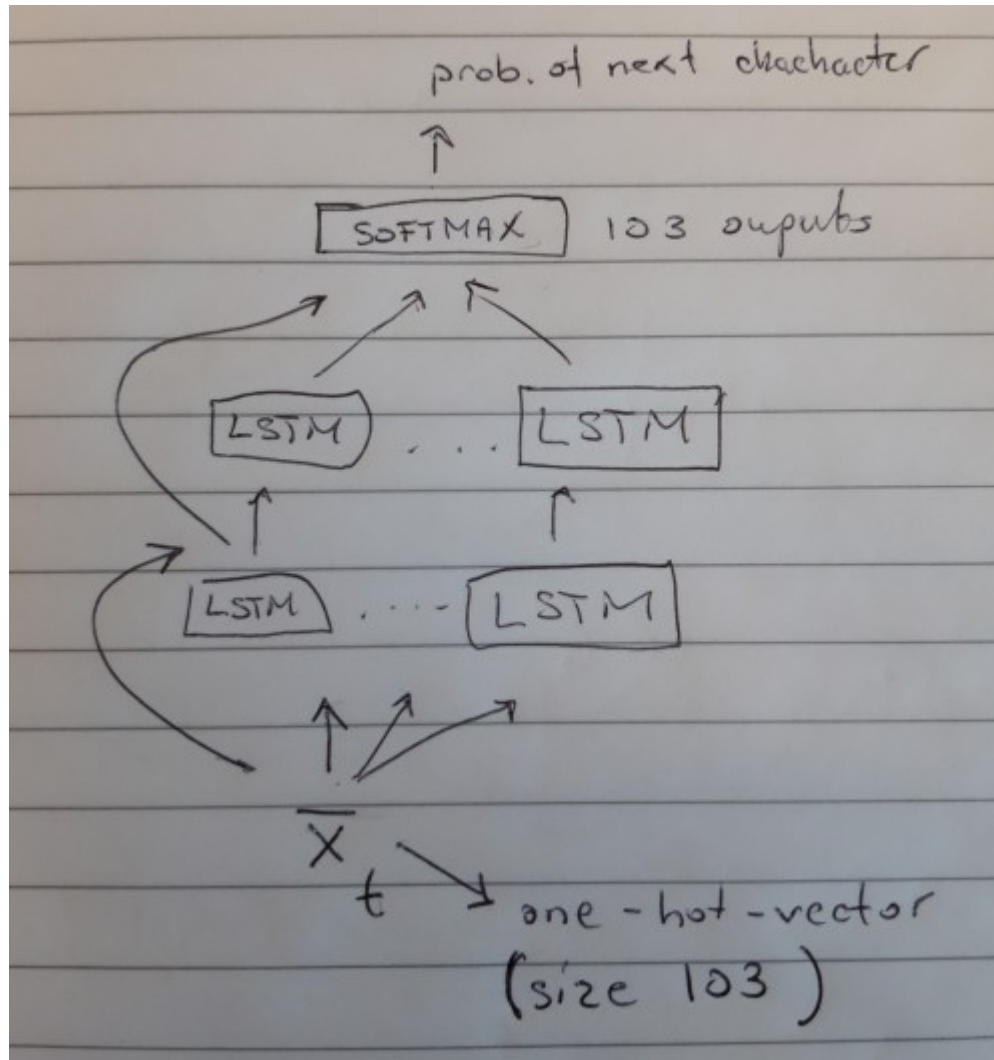 prob. of next chachacter
SOFTMAX 103 ouputs
LSTM . . . LSTM
LSTM ..... LSTM
X̅
t
one-hot-vector
(size 103)